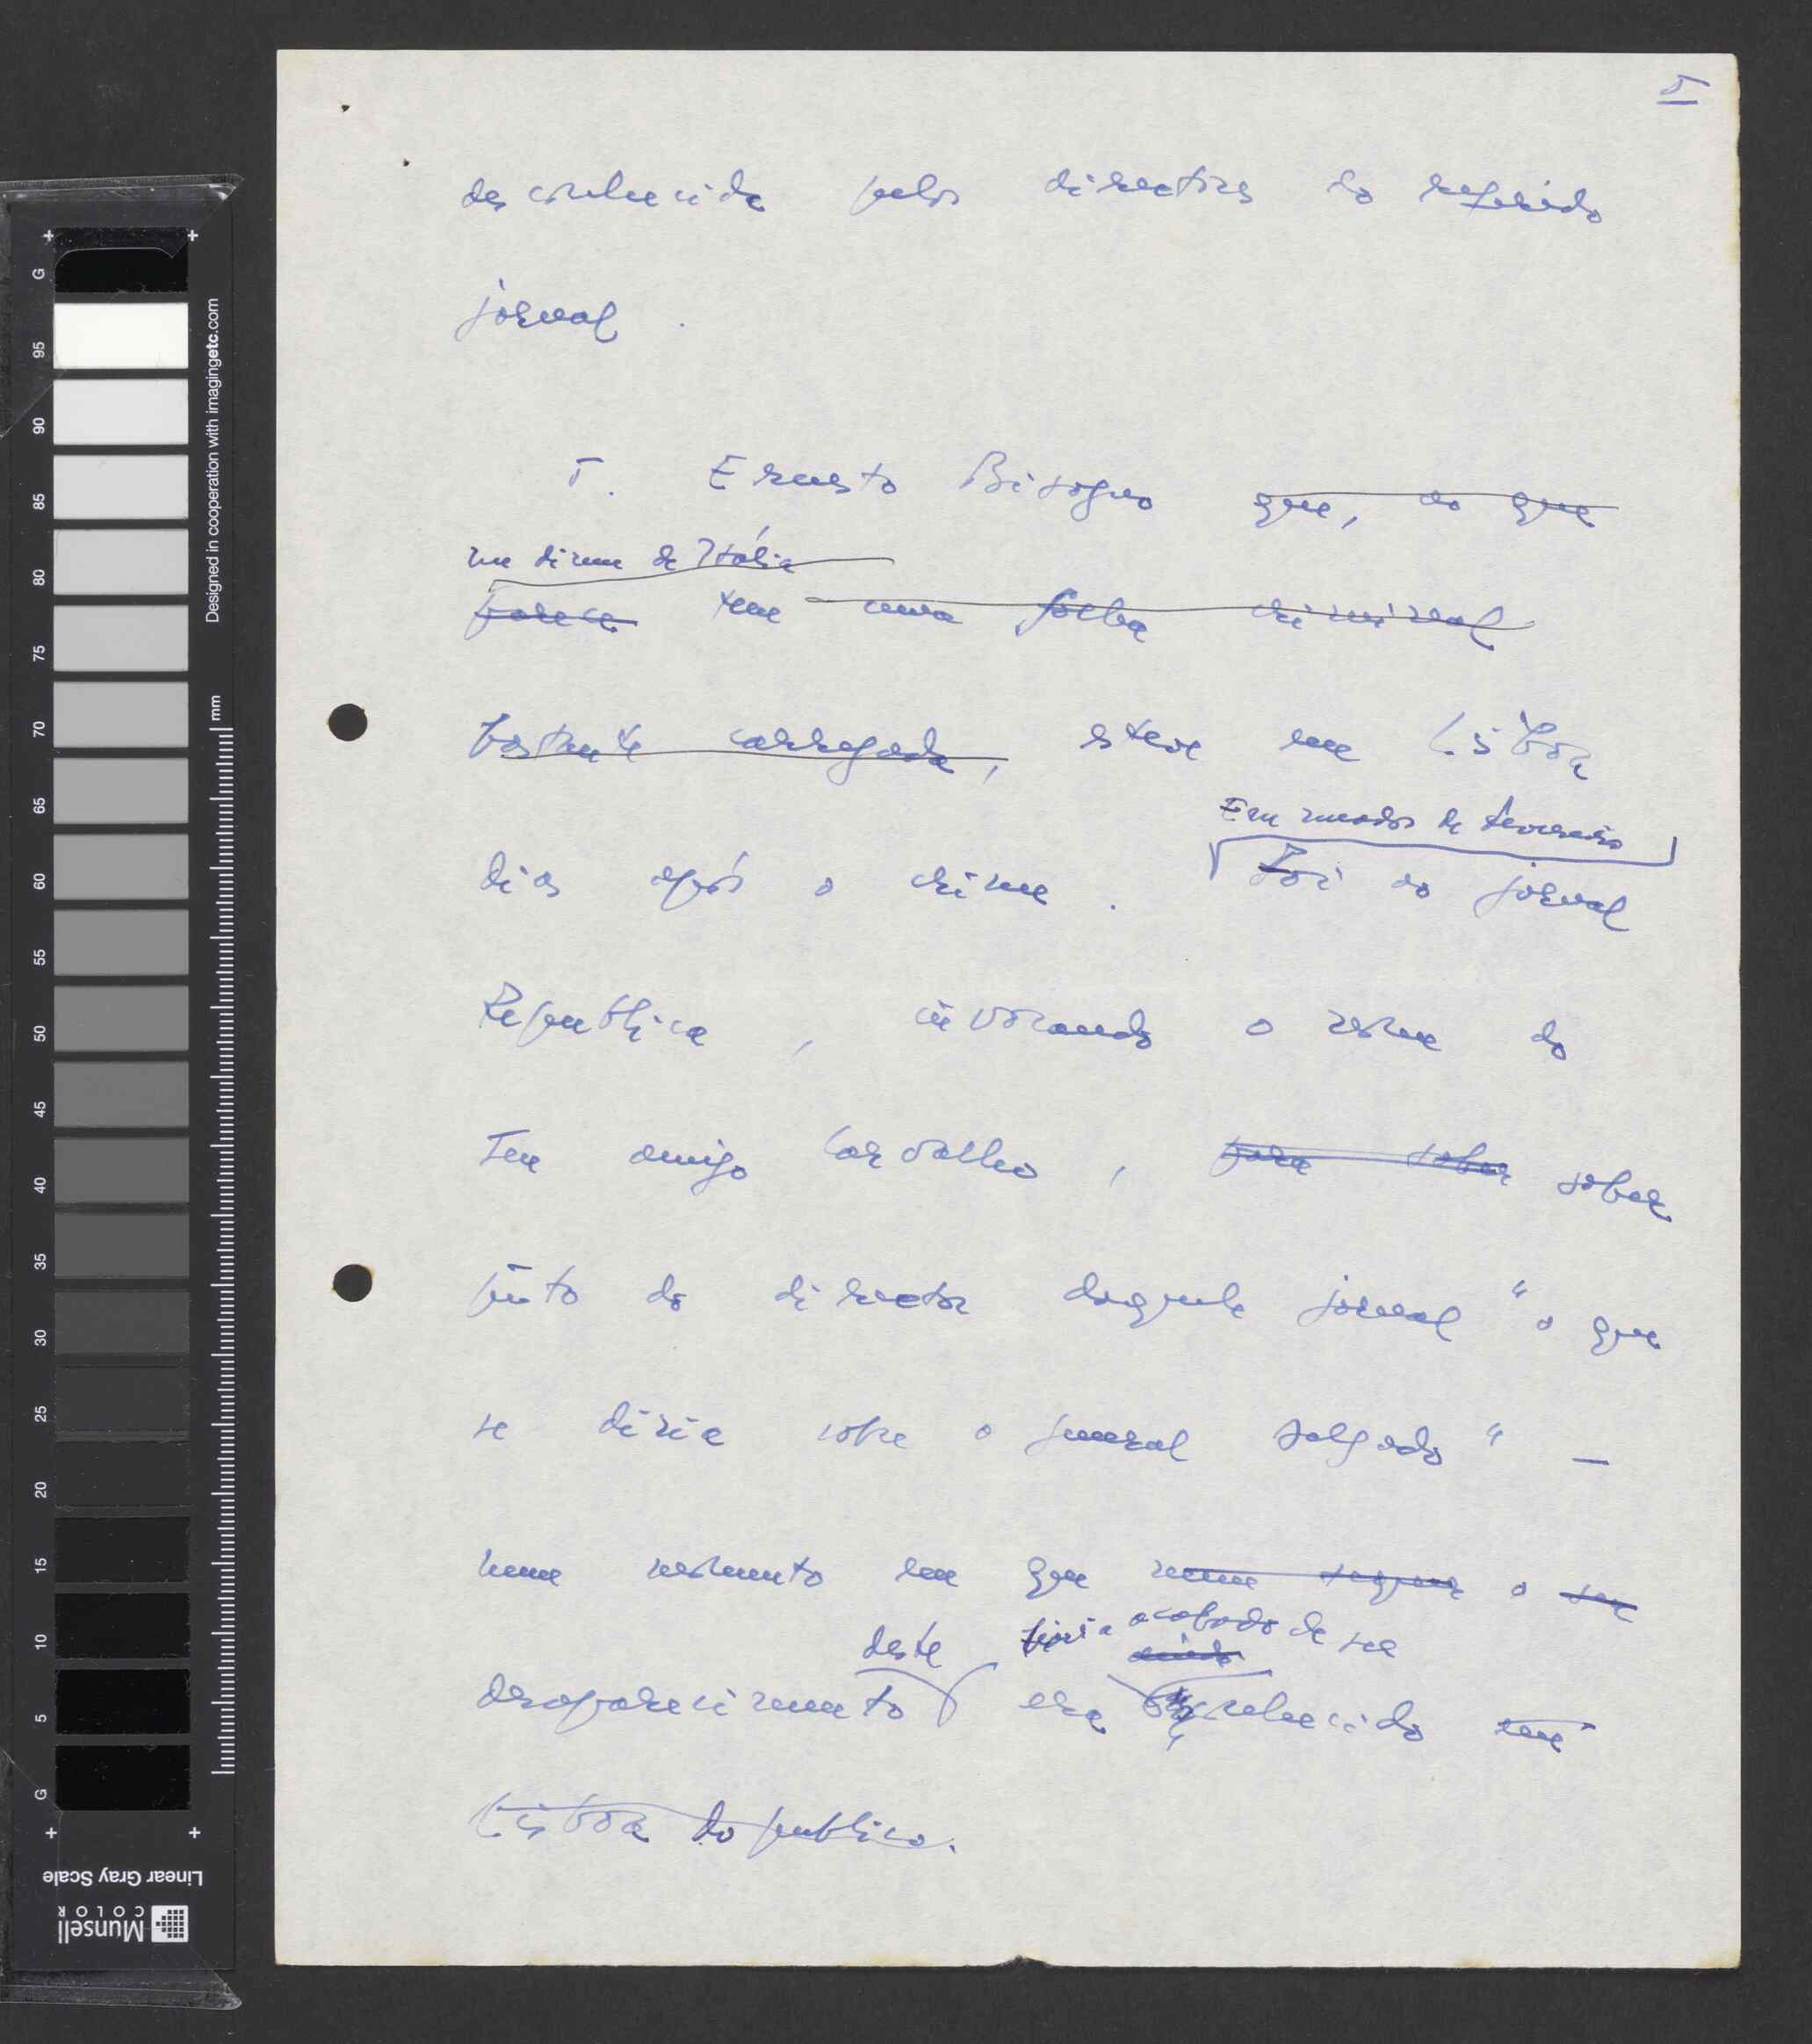 5
desconhecida pelos directores do referido
jornal.
5. Ernesto Bisogno que, ao que
de Itália
parece tem uma folha criminal
bastante carregada, esteve em Lisboa
Em meados de Fevereiro
dias após o crime. Foi ao jornal
Republica, invocando o nome do
seu amigo Carvalho, para saber saber
junto do director daquele jornal "o que
se dizia sobre o general Delgado" —
num momento em que nem sequer o seu
deste tinha acabado de ser
ainda
desaparecimento era conhecido em
Lisboa do publico.
Designed in cooperation with imagingetc.com
mm
G 95 90 85 80 75 70 65 60 55 50 45 40 35 30 25 20 15 10 5 G
Linear Gray Scale
Munsell
COLOR